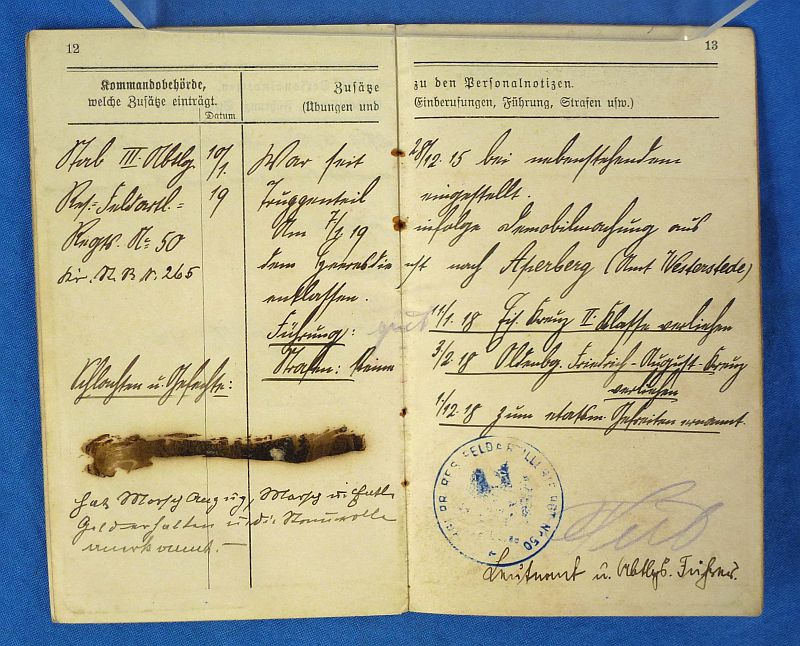 12
Kommandobehörde,
welche Zusätze einträgt.
Datum
Zusätze
(Übungen und
Stab III. Abtlg.
Res.-Feldartl.-
Regts. No 50
Kr. St. R. N. 265
10/1.
19
War seit
Truppenteil
Am 7/1 19
dem Heeresdie
entlassen.
Führung: gut
Strafen: Keine
Schlachten u. Gefechte:
hat Marschanzug, Marsch u. Entl.
Geld erhalten u. die Stammrolle
anerkannt. –
13
zu den Personalnotizen.
Einberufungen, Führung, Strafen usw.)
28/12. 15 bei nebenstehendem
eingestellt.
infolge Demobilmachung aus
nst nach Aperberg (Amt Westerstede)
11/1. 18 Eis. Kreuz II. Klasse verliehen
3/2. 18 Oldenbg. Friedrich-August-Kreuz
verliehen
1/12. 18 zum etatsm. Gefreiten ernannt.
PR. RES. FELDARTILLERIE RGT. Nr. 50
Leutnant u. Abtlgs. Führer.